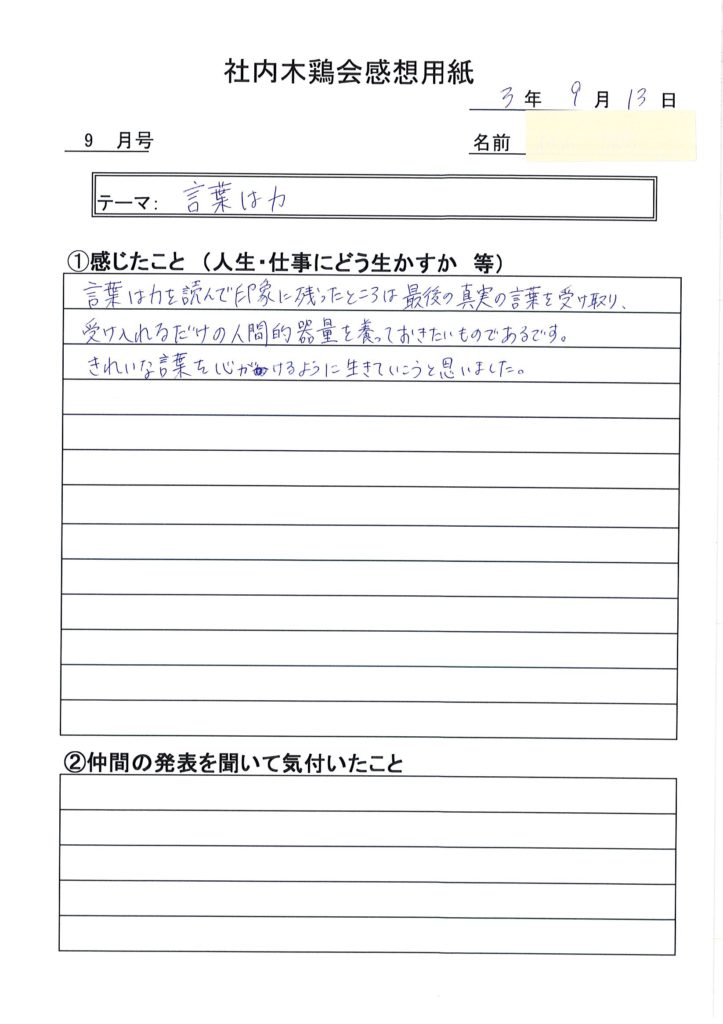 社内木鶏会感想用紙
3年 9月 13日
9 月号
名前
テーマ: 言葉は力
①感じたこと（人生・仕事にどう生かすか 等）
言葉は力を読んで印象に残ったところは最後の真実の言葉を受け取り、
受け入れるだけの人間的器量を養っておきたいものであるです。
きれいな言葉を心がけるように生きていこうと思いました。
②仲間の発表を聞いて気付いたこと